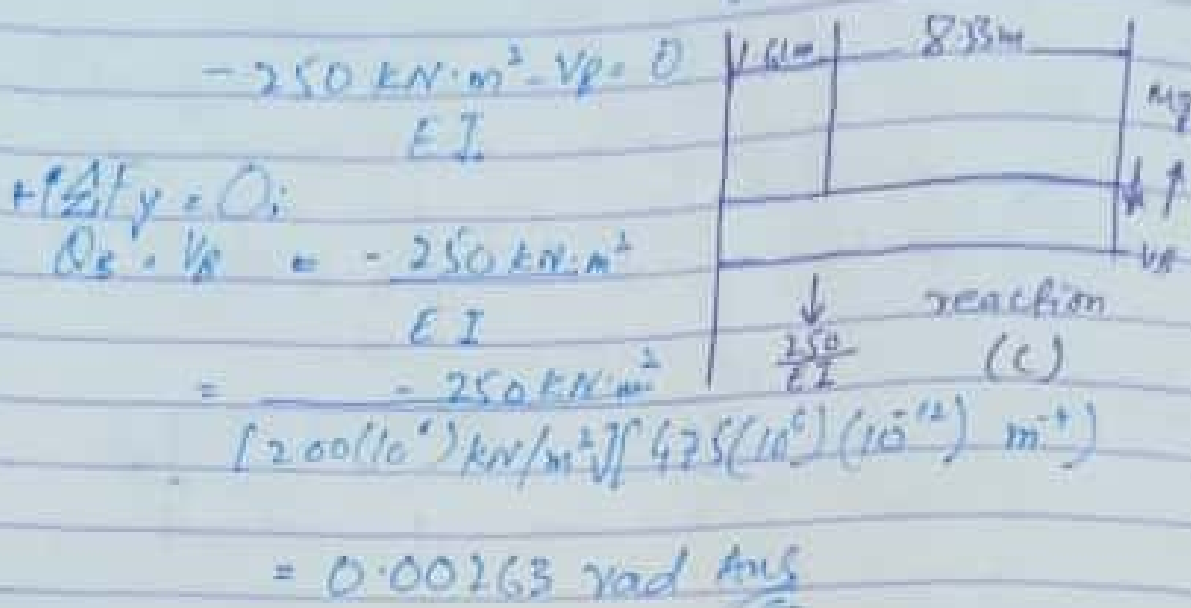 - 250 kN·m² - VB = 0
EI
+↑Σfy = 0;
θB = VB = - 250 kN·m²
EI
= - 250 kN·m²
[200(10⁶) kN/m²][475(10⁶)(10⁻¹²) m⁴]
= 0.00263 rad Ans
8.33m
250
EI
reaction
(C)